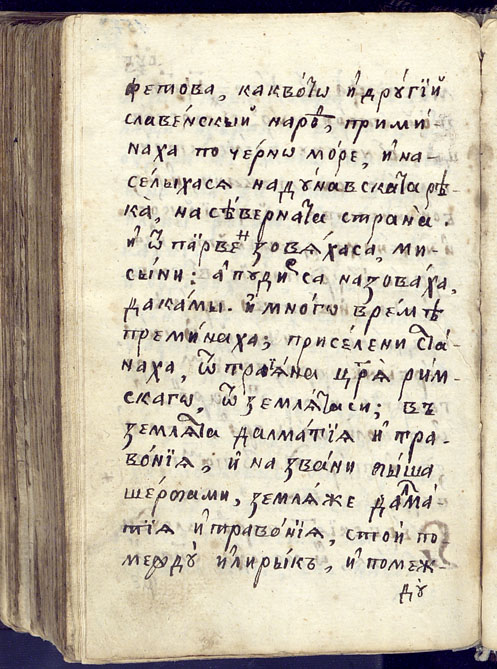 фетова, каквото и другїй
славе́нскый наро́д, прими́-
наха по че́рно мо́ре, и на-
се́лыхася на дꙋ́навската рѣ-
ка̀, на сѣ́верната страна̀.
и҆ ѿ па́рвен зовѧ́хаса, ми
сы́ни: а҆ пꙋди́рса на зова́ха,
дака́мы. и҆ мно́гѡ вре́мѣ
преми́наха, присе́лени ста́-
наха, ѿ траїѧ́на цр҃ѧ̀ ри́м-
скагѡ, ѿ землѧ́таси; въ
землѧ́та далма́тїѧ и҆ тра-
во́нїѧ; и҆ на зва́ни бы́ша
ше́рбами, землѧ́же далма́
тїѧ и҆ траво́нїѧ, стои́ по
междꙋ̀ и҆лиры́къ, и҆ поме́ж-
дꙋ̀